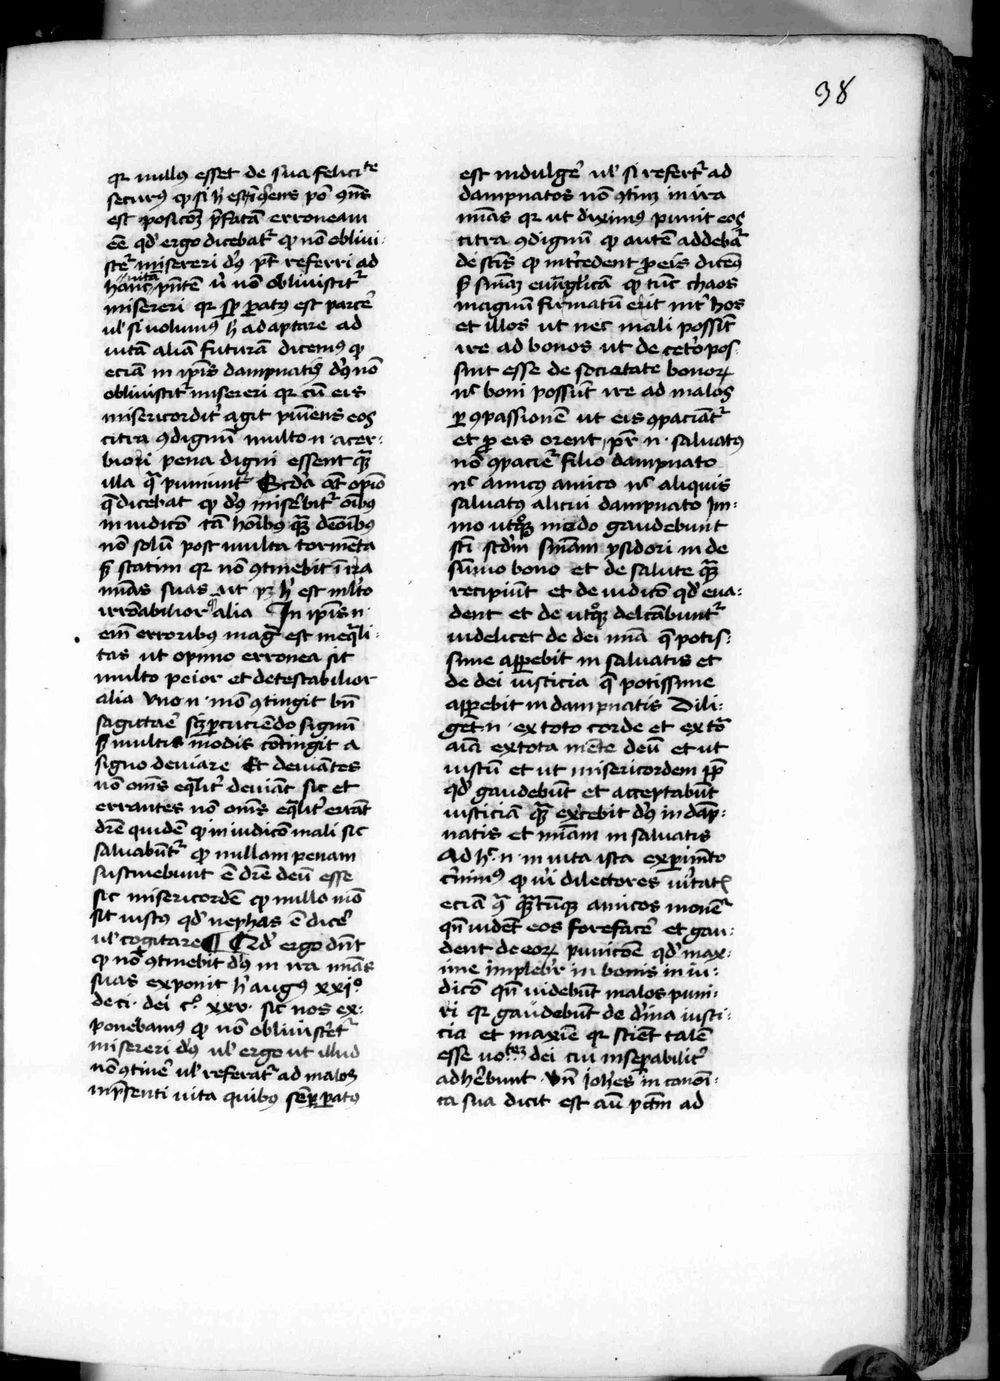 38
qr nullus esset de sua felicite
securus qp si h est inferens po ons
est posicoz pfatam erroneam
ee qd ergo dicebatr qp no oblivi
scetr misereri ds pt referri ad
hanc vita pntem u no obliviscitr
misereri qr sp paratus est parcere
ul si volumus h adaptare ad
vitam aliam futuram dicemus qp
eciam in ipis dampnatis ds no
obliviscitr misereri qr cu eis
misericorditer agit puniens eos
citra condignum multo n acer
biori pena digni essent qam
illa qa puniuntr Scda at opio
q dicebat qp ds miserebitr oibus
in iudico tam hoibus qam demoibus
no solum post multa tormenta
sed statim qr no continebit in ira
mias suas ut pz h est mlto
irronabilior qm alia In ipis n
eim erroribus magna est ineqali
tas ut opinio erronea sit
multo peior et detestabilior
alia uno n modo contingit bn
sagittare scz percuciendo signum
sed multis modis contingit a
signo deviare Et deviantes
non oms eqalitr deviant sic et
errantes non oms eqalitr errant
dre quidem qp in iudico mali sic
salvabuntr qp nullam penam
sustinebunt e dre deum esse
sic misericordem qp nullo mo
sit iustus qd nephas e dice
ul cogitare ¶ Qd ergo dnt
qp no continebit ds in ira mias
suas exponit h augus xxjo
de ci dei co xxv sic nos ex
ponebamus qp no obliviscetr
misereri ds ul ergo ut illud
non continere ul referatr ad malos
in psenti vita quibus semp paratus
est indulgere ul si refertr ad
dampnatos non continet in ira
mias qr ut diximus punit eos
citra condignum qp autem addebat
de scis qp intercedent pro eis dicemus
sed smam evanglicam qp tunc chaos
magnum firmatum erit intr hos
et illos ut nec mali possint
ire ad bonos ut de cetero pos
sint esse de societate bonorum
nec boni possunt ire ad malos
per compassionem ut eis compaciantr
et pro eis orent pr n salvatus
non compacietr filio dampnato
nec amicus amico nec aliquis
salvatus alicui dampnato Im
mo utroqz modo gaudebunt
sci scdm smam ysidori in de
summo bono et de salute qam
recipiunt et de iudico qd eva
dent et de utroqz delcabuntr
videlicet de dei mia q potis
sime apparebit in salvatis et
de dei iusticia q potissime
apparebit in dampnatis Dili
gent n ex toto corde et ex tota
aia ex tota mente deum et ut
iustum et ut misericordem pp
qd gaudebunt et acceptabunt
iusticiam qam exercebit ds in damp
natis et miam in salvatis
Ad hc n in vita ista experimento
cernimus qp viri dilectores veritatis
eciam qa qantumqz amicos moventr
qn vident eos forefacere et gau
dent de eorum punicoe qd max
ime implebitr in bonis in iu
dico qn videbunt malos puni
ri qr gaudebunt de divina iusti
cia et maxime qr scient talem
esse votatez dei cui inseparabilitr
adherebunt Vn johes in canoni
ca sua dicit est aut pctm ad